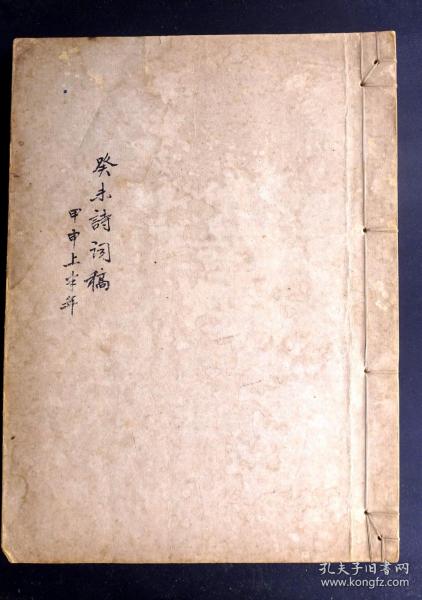 癸未詩词稿
甲申上半年
孔夫子旧书网
www.kongfz.com